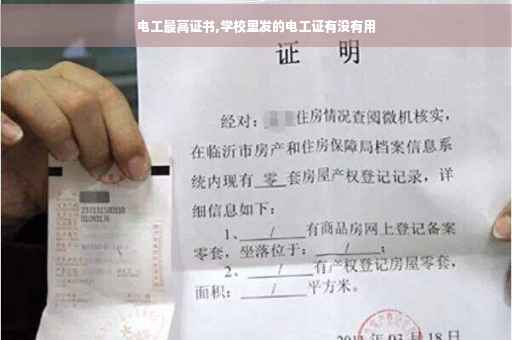 电工最高证书,学校里发的电工证有没有用
证 明
经对：住房情况查阅微机核实，
在临沂市房产和住房保障局档案信息系
统内现有 零 套房屋产权登记记录，详
细信息如下：
1、 / 有商品房网上登记备案
零套，坐落位于： / ；
2、 / 有产权登记房屋零套，
面积： / 平方米。
月 18 日